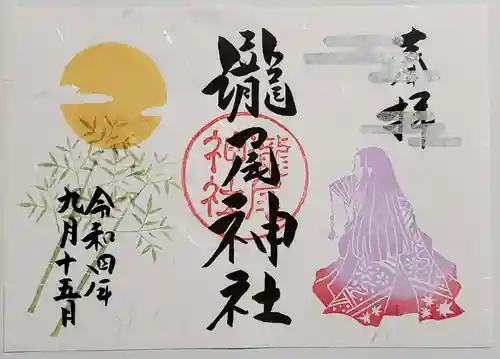 奉拝
瀧尾神社
瀧尾
神社
令和四年
九月十五日